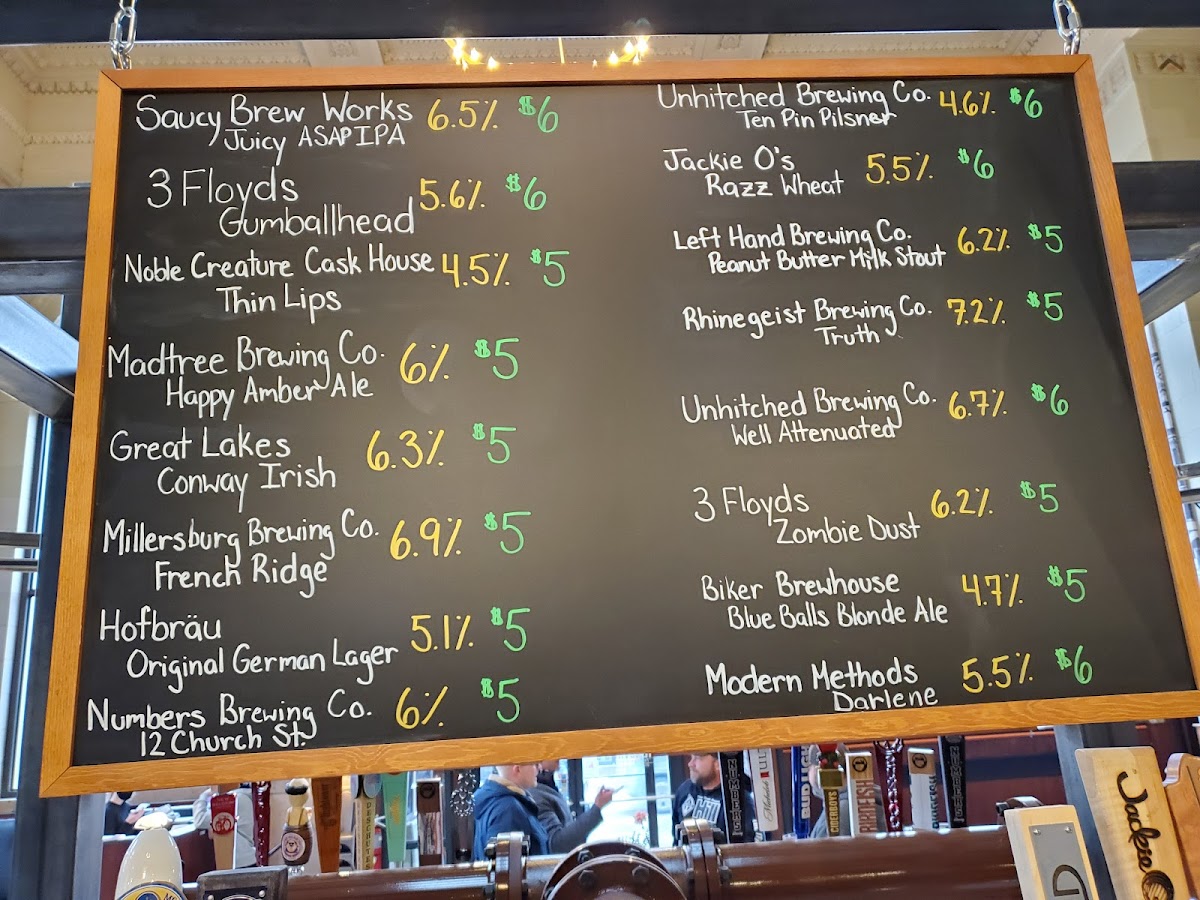 Saucy Brew Works 6.5% $6
Juicy ASAP IPA
3 Floyds 5.6% $6
Gumballhead
Noble Creature Cask House 4.5% $5
Thin Lips
Madtree Brewing Co. 6% $5
Happy Amber Ale
Great Lakes 6.3% $5
Conway Irish
Millersburg Brewing Co. 6.9% $5
French Ridge
Hofbräu 5.1% $5
Original German Lager
Numbers Brewing Co. 6% $5
12 Church St.
Unhitched Brewing Co. 4.6% $6
Ten Pin Pilsner
Jackie O's 5.5% $6
Razz Wheat
Left Hand Brewing Co. 6.2% $5
Peanut Butter Milk Stout
Rhinegeist Brewing Co. 7.2% $5
Truth
Unhitched Brewing Co. 6.7% $6
Well Attenuated
3 Floyds 6.2% $5
Zombie Dust
Biker Brewhouse 4.7% $5
Blue Balls Blonde Ale
Modern Methods 5.5% $6
Darlene
DESCHUTES
BUD LIGHT
Jackie O